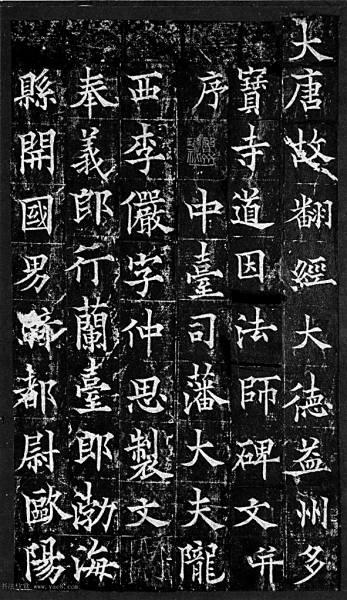 大唐故翻經大德益州多
寶寺道因法師碑文并
序 中臺司藩大夫隴
西李儼字仲思製文
奉義郎行蘭臺郎渤海
縣開國男騎都尉歐陽